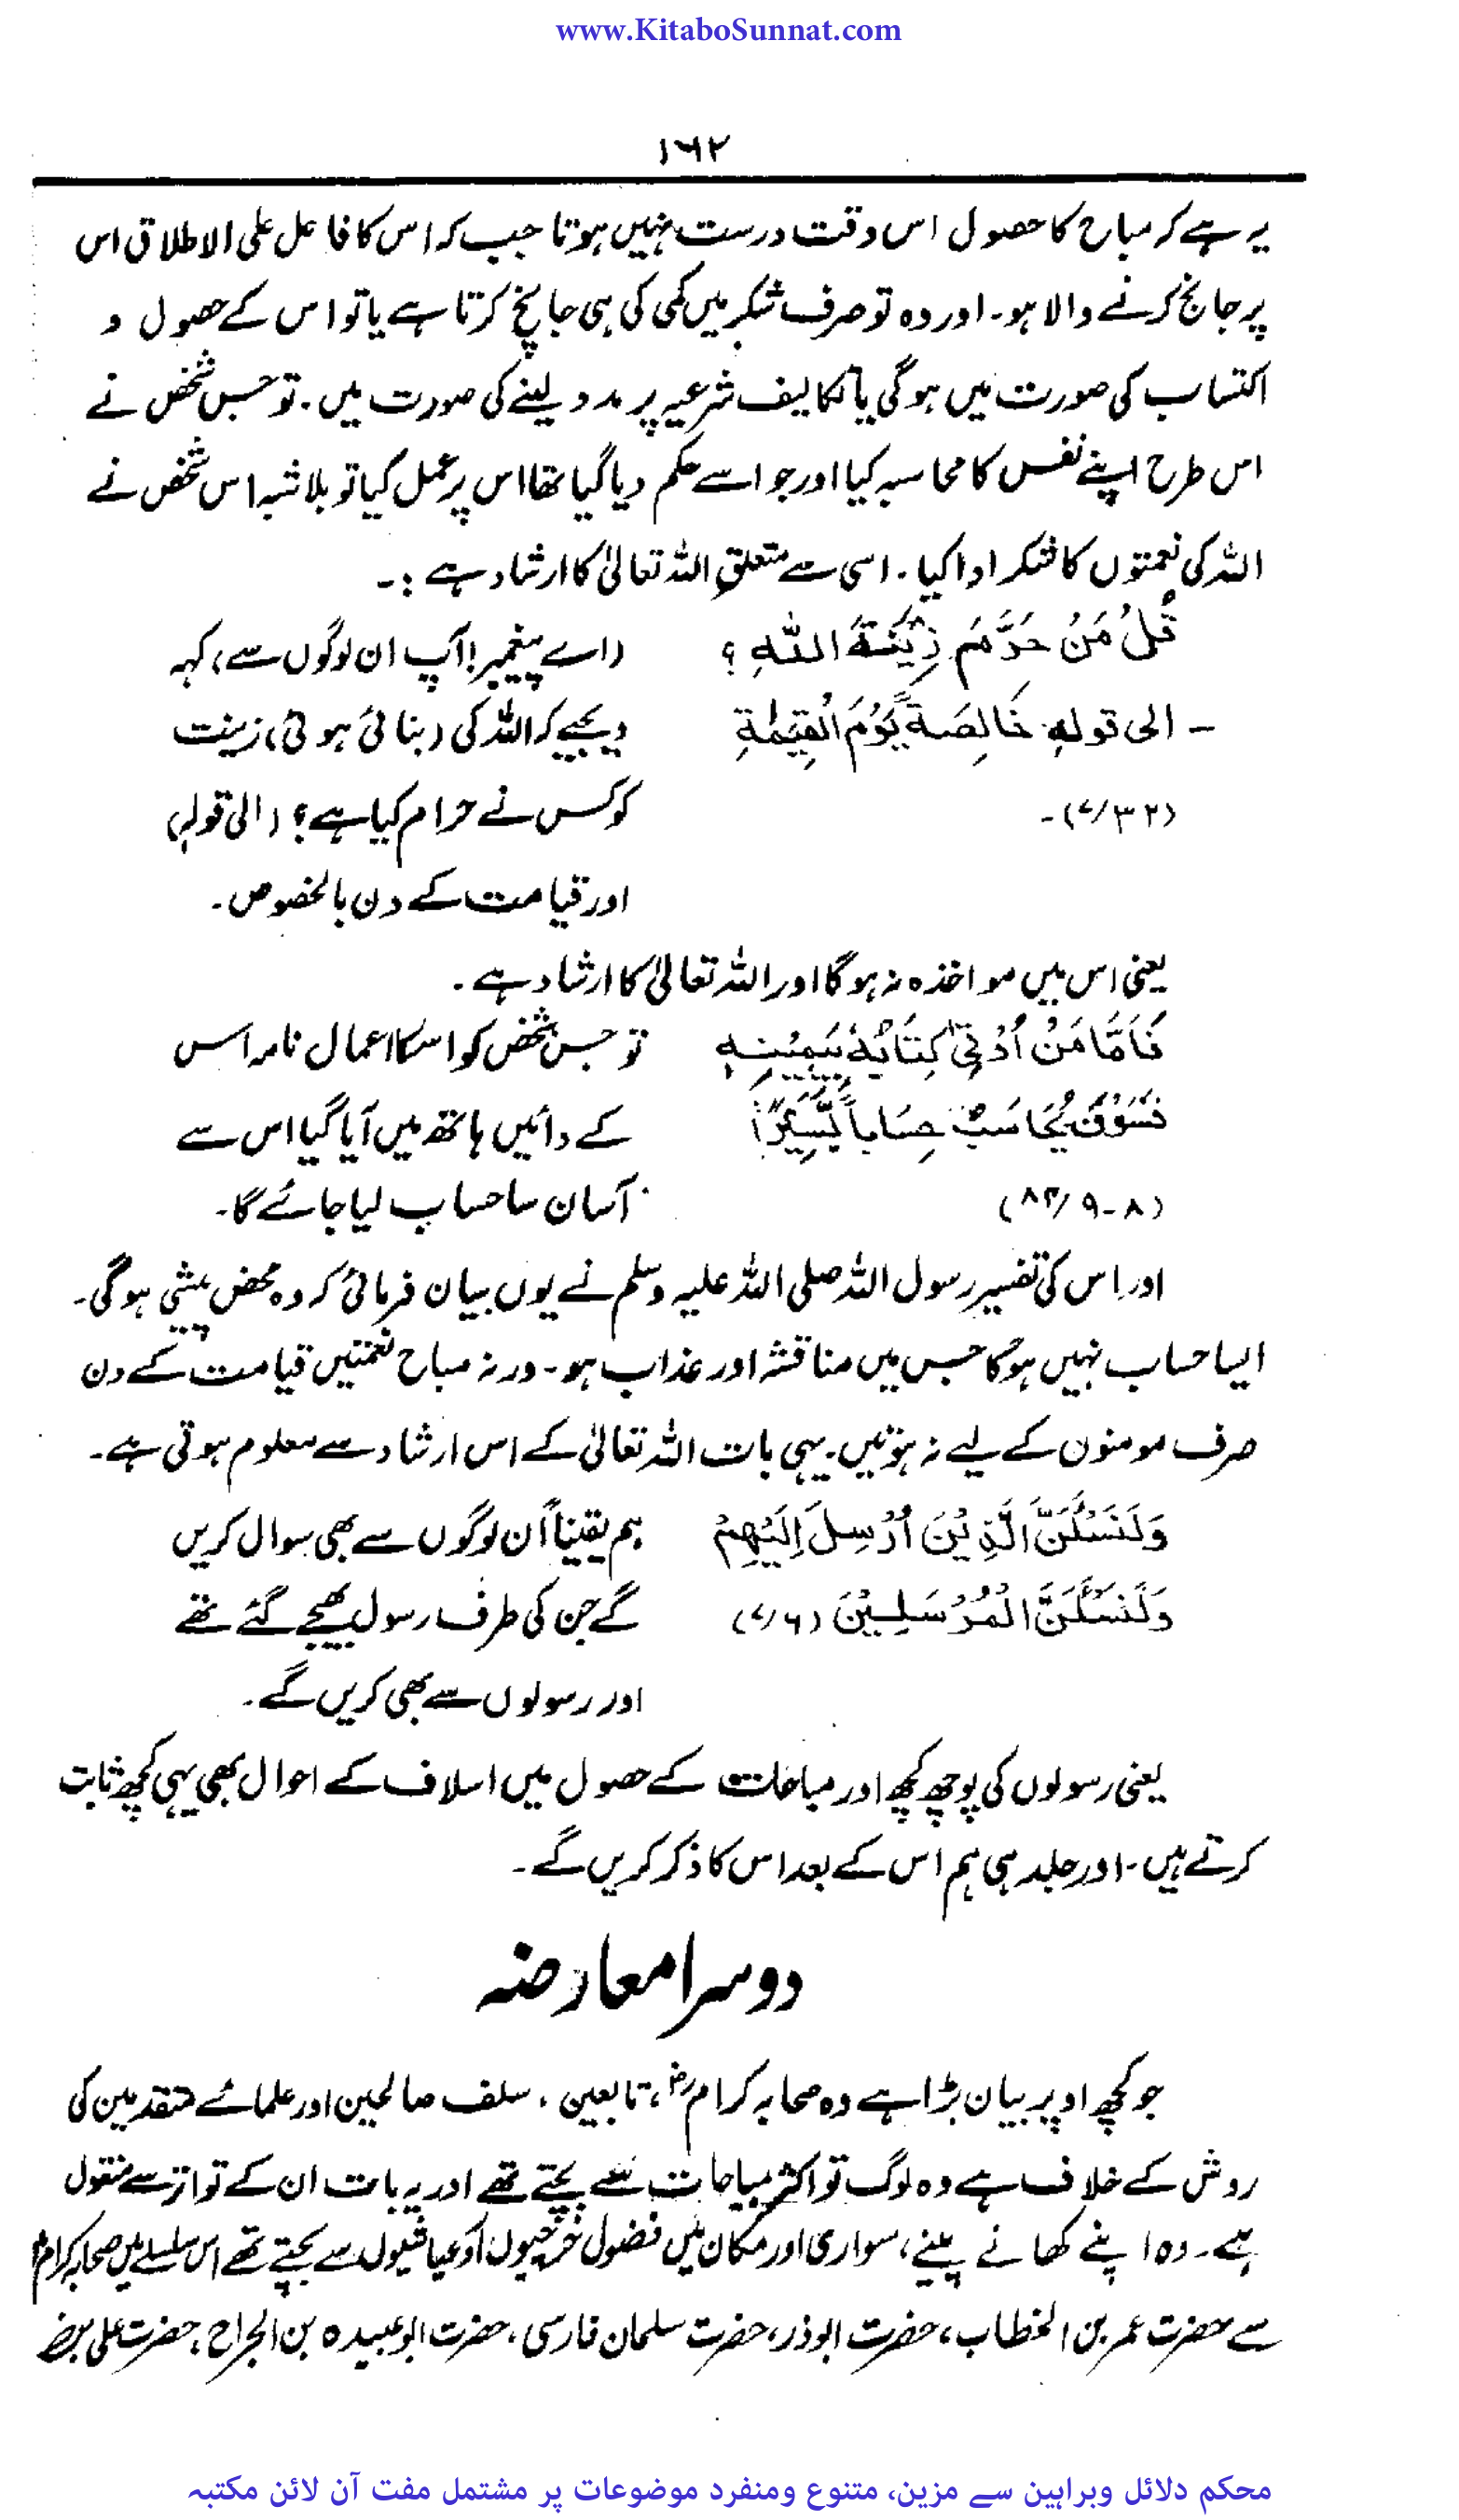 www.KitaboSunnat.com
۱۶۲
یہ ہے کہ مباح کا حصول اس وقت درست نہیں ہوتا جب کہ اس کا فاعل علی الاطلاق اس
پر جانچ کرنے والا ہو۔ اور وہ تو صرف شکر میں کمی کی ہی جانچ کرتا ہے یا تو اس کے حصول و
اکتساب کی صورت میں ہوگی یا تکالیف شرعیہ پر مدد لینے کی صورت میں۔ تو جس شخص نے
اس طرح اپنے نفس کا محاسبہ کیا اور جو اسے حکم دیا گیا تھا اس پر عمل کیا تو بلا شبہ اس شخص نے
اللہ کی نعمتوں کا شکر ادا کیا۔ اسی سے متعلق اللہ تعالیٰ کا ارشاد ہے :۔
قُلْ مَنْ حَرَّمَ زِيْنَةَ اللهِ ؟ (اے پیغمبر! آپ ان لوگوں سے) کہہ
۔ الی قولہٖ خَالِصَةً يَّوْمَ الْقِيٰمَةِ دیجیے کہ اللہ کی (بنائی ہوئی) زینت
(۷/۳۲)۔ کو کس نے حرام کیا ہے؟ (الی قولہ)
اور قیامت کے دن بالخصوص۔
یعنی اس میں مواخذہ نہ ہوگا اور اللہ تعالیٰ کا ارشاد ہے۔
فَاَمَّا مَنْ اُوْتِيَ كِتَابَهٗ بِيَمِيْنِهٖ تو جس شخص کو اسکا اعمال نامہ اس
فَسَوْفَ يُحَاسَبُ حِسَاباً يَّسِيْرًا کے دائیں ہاتھ میں آیا گیا اس سے
(۸-۹/۸۴) آسان سا حساب لیا جائے گا۔
اور اس کی تفسیر رسول اللہ صلی اللہ علیہ وسلم نے یوں بیان فرمائی کہ وہ محض پیشی ہوگی۔
ایسا حساب نہیں ہوگا جس میں مناقشہ اور عذاب ہو۔ ورنہ مباح نعمتیں قیامت کے دن
صرف مومنون کے لیے نہ ہوتیں۔ یہی بات اللہ تعالیٰ کے اس ارشاد سے معلوم ہوتی ہے۔
وَلَنَسْئَلَنَّ الَّذِيْنَ اُرْسِلَ اِلَيْهِمْ ہم یقیناً اُن لوگوں سے بھی سوال کریں
وَلَنَسْئَلَنَّ الْمُرْسَلِيْنَ (۷/۶) گے جن کی طرف رسول بھیجے گئے تھے
اور رسولوں سے بھی کریں گے۔
یعنی رسولوں کی پوچھ کچھ اور مباحات کے حصول میں اسلاف کے احوال بھی یہی کچھ ثابت
کرتے ہیں۔ اور جلد ہی ہم اس کے بعد اس کا ذکر کریں گے۔
دوسرا معارضہ
جو کچھ اوپر بیان بڑا ہے وہ صحابہ کرامؓ، تابعین، سلف صالحین اور علمائے متقدمین کی
روش کے خلاف ہے وہ لوگ تو اکثر مباحات سے بچتے تھے اور یہ بات ان کے تواتر سے منقول
ہے۔ وہ اپنے کھانے پینے، سواری اور مکان میں فضول خرچیوں اور عیاشیوں سے بچتے تھے اس سلسلے میں صحابہ کرامؓ
سے حضرت عمر بن الخطاب، حضرت ابوذر، حضرت سلمان فارسی، حضرت ابو عبیدہ بن الجراح، حضرت علی
محکم دلائل وبراہین سے مزین، متنوع ومنفرد موضوعات پر مشتمل مفت آن لائن مکتبہ